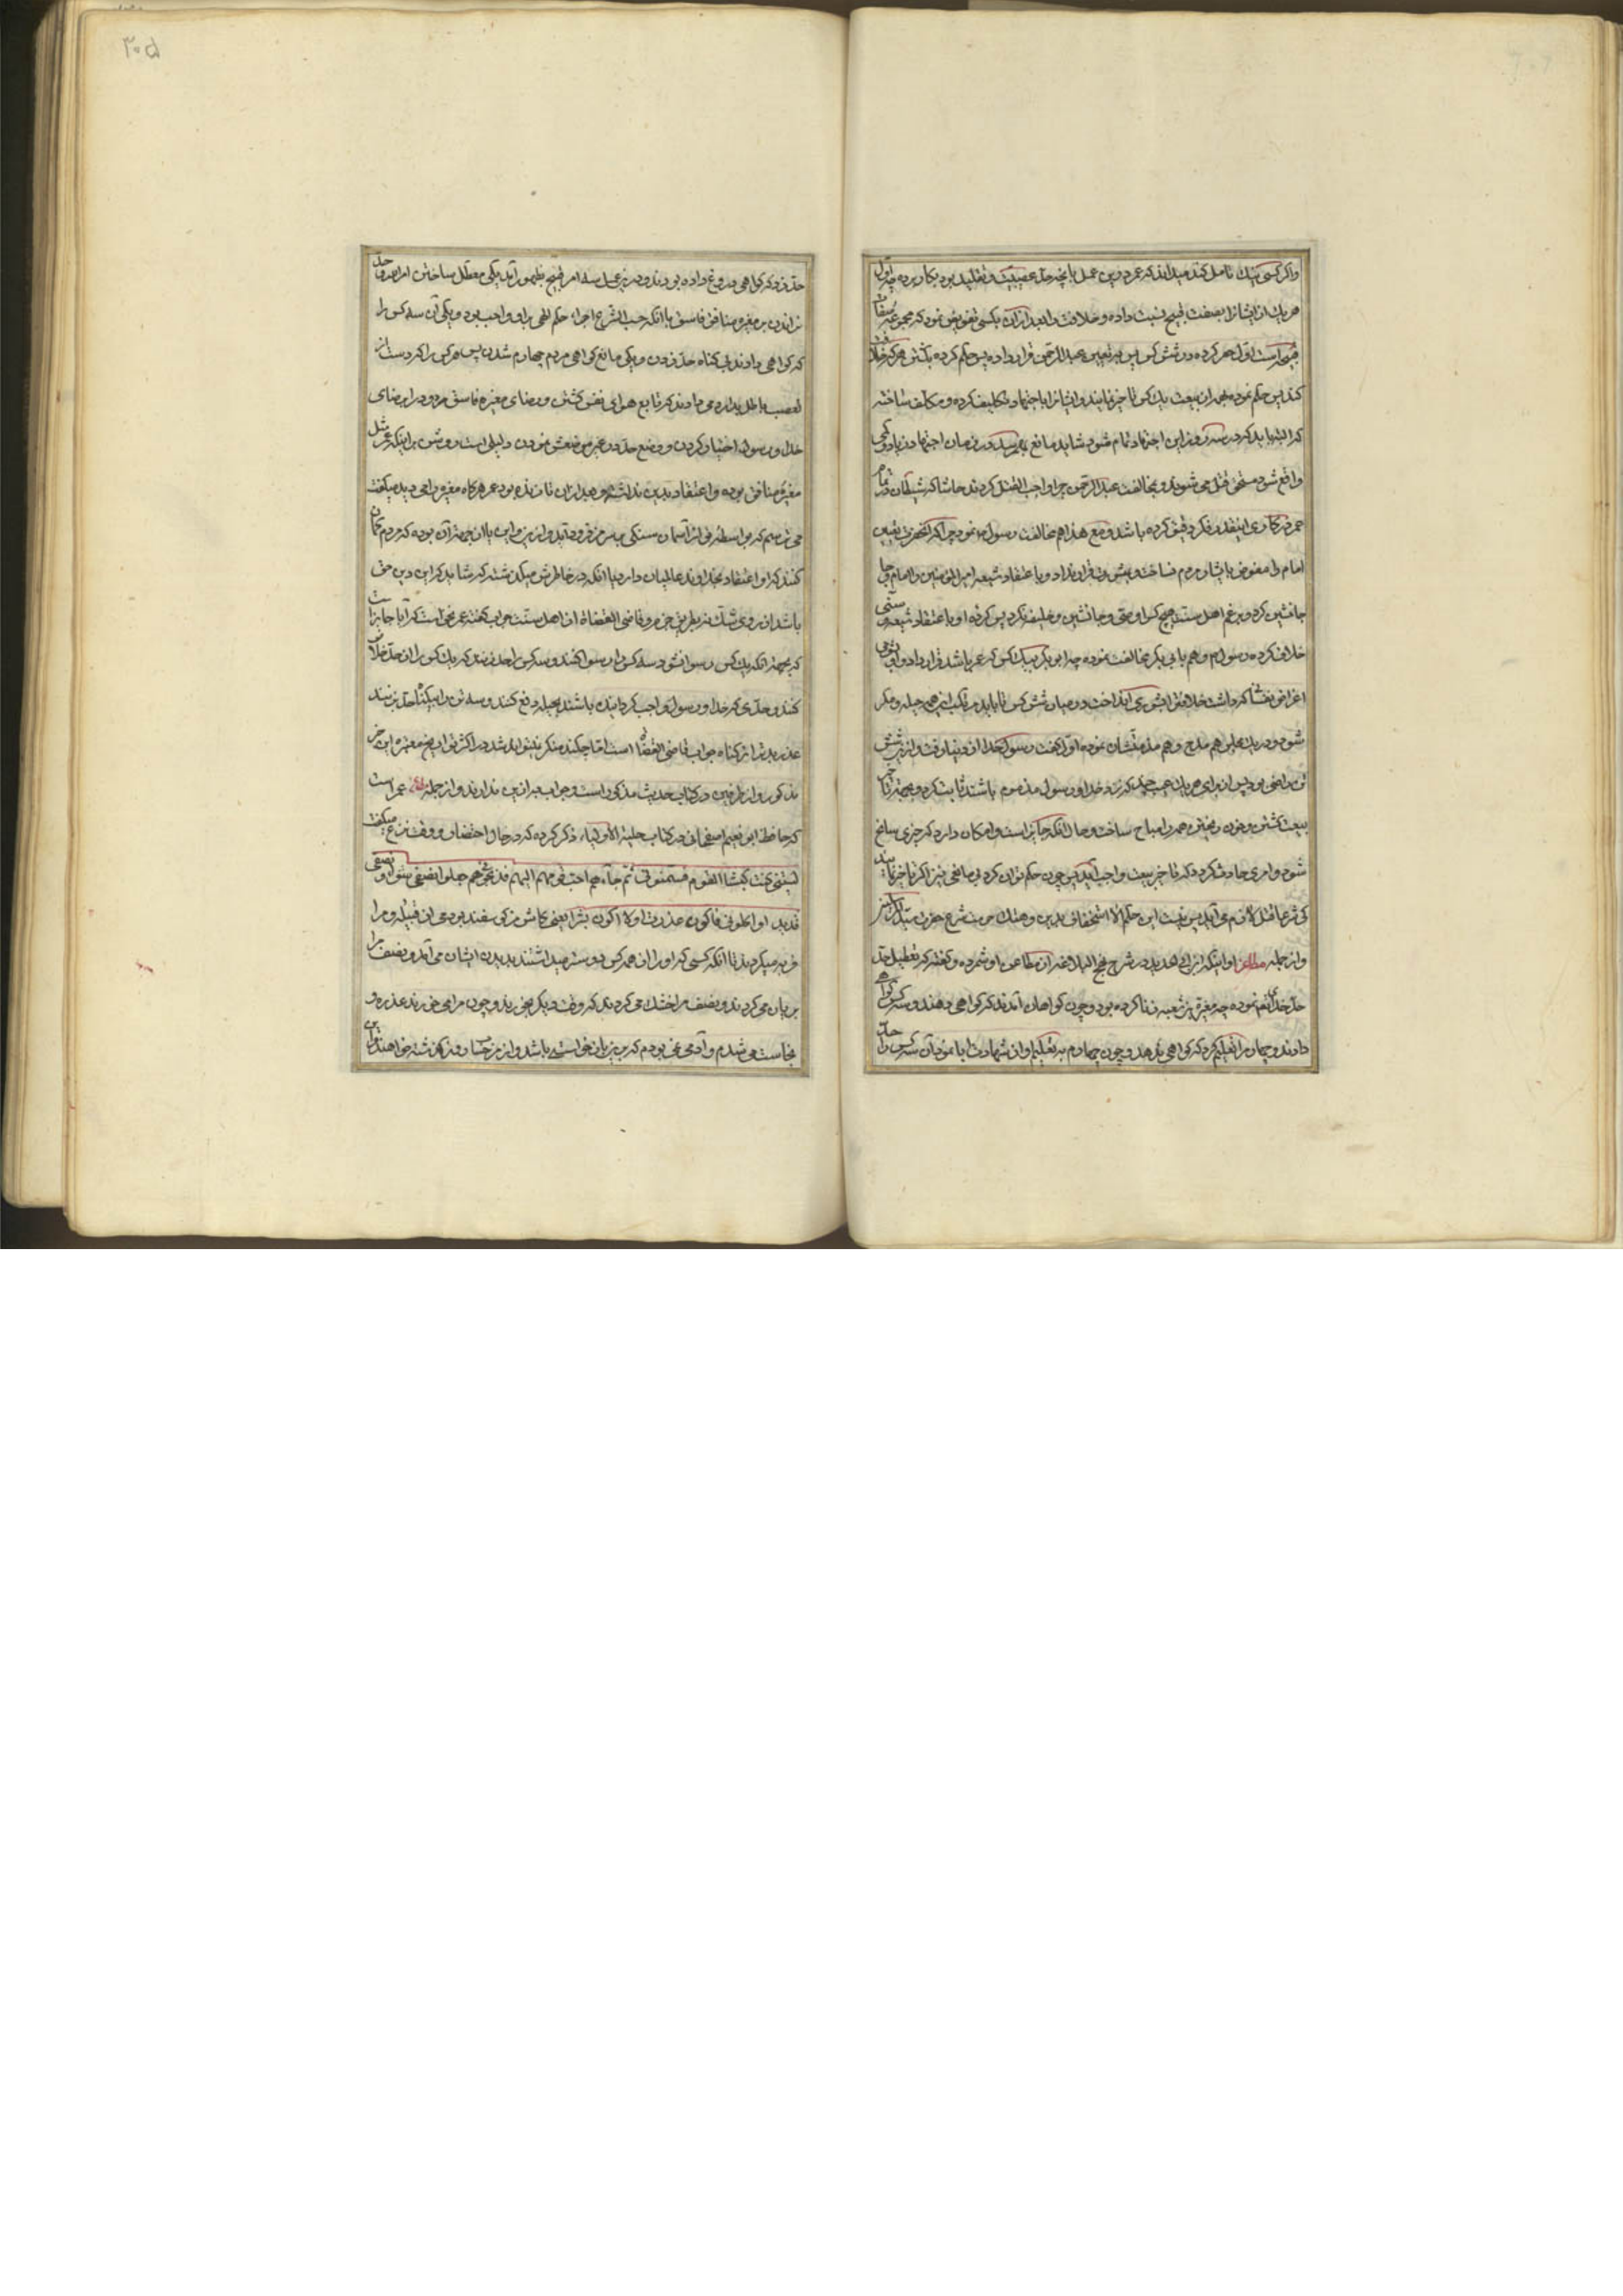 واکر کسی نیك تامل کند میداند که عمر درین عمل بانچه حد عصبیت و تقلید بود بکار برده چه اول
هریك از ایشانرا بصفت قبیح نسبت داده و خلافت را بعد از آن بکسی تفویض نموده که مجمع
است اول حصر کرده در شش کس پس بتعیین عبد الرحمن قرار داده پس حکم کرده بکشتن هرکه خلاف
کند پس حکم نموده بیعت یك کس تاخیر نمایند و ایشانرا باجتهاد تکلیف کرده و مکلف ساخته
که البته باید که در سه روز این اجتهاد تمام شود شاید مانع بهم رسد در زمان اجتهاد زیاد و کمی
واقع شود مستحق قتل می شوند و بمخالفت عبد الرحمن چرا واجب القتل کردند حاشا که شیطان در تمام
عمر در کاری اینقدر فکر دقیق کرده باشد و مع هذا هم مخالفت رسول نموده چرا که آنحضرت تعیین
امام را مفوض بایشان و مردم نساخت و شش قرار نداد و باعتقاد شیعه امیر المؤمنین را امام و جا
جانشین کرد و بزعم اهل سنت هیچ کس را وصی و جانشین و خلیفه نکرد پس کرده او باعتقاد شیعه و سنی
خلاف کرده رسول و هم بابی بکر مخالفت نموده چه ابو بکر بیك کس که عمر باشد قرار داد و او
اغراض که داشت خلافترا بشوری انداخت در میان شش کس تا باید مرتکب این همه حیله و مکر
شود و در یك مجلس هم مدح و هم مذمتشان نموده اول گفت رسول خدا از دنیا رفت و ازین شش
تن راضی بود پس از برای هریك عیب که نزد خدا و رسول مذموم باشند ثابت کرد و بجهة تاخیر
بیعت کشتن و خون ریختن همه را مباح ساخت و حال آنکه جایز است و امکان دارد که چیزی سانح
شود و امری حادث گردد که تاخیر بیعت واجب آید پس چون حکم توان کرد بی مانعی نیز اگر تاخیر نمایند
کی شرعا قتل لازم می آید پس نیست این حکم الا استخفاف بدین و هتك حرمت شرع حضرت سید
واز جمله مطاعن او اینکه ابن ابی الحدید در شرح نهج البلاغه از مطاعن او شمرده و گفته که تعطیل حد
حد خدای نعم نموده چه مغیرة بن شعبه زنا کرده بود و چون گواهان آمدند که گواهی دهند و سه کس گواهی
دادند و چهارم را تعلیم کرد که گواهی ندهد و چون چهارم به تعلیم او از شهادت ابا نمود آن سه کس را حد
حد زد که گواهی دروغ داده بودند و درین عمل سه امر قبیح بظهور آمد یکی معطل ساختن امر الهی و حد
نراندن بر مغیره منافق فاسق با آنکه حسب الشرع اجراء حکم الهی بر او واجب بود و یکی آن سه کس را
که گواهی دادند بی کناه حد زدن و یکی مانع گواهی مردم چهارم شدن پس هر کس را که دست از
تعصب باطل بدارد می داند که تابع هوای نفس گشتن و رضای مغیره فاسق مردود را بر رضای
خدا و رسول اختیار کردن و وضع حد در غیر موضعش نمودن دلیلی است روشن بر اینکه عمر مثل
مغیره منافق بوده و اعتقاد بدین نداشته و بعد از آن تا زنده بود عمر هرگاه مغیره را می دید میگفت
می ترسم که بواسطه تو از آسمان سنکی بر سر من فرود آید و این یا از جهة آن بوده که مردم گمان
کنند که او اعتقاد بخداوند عالمیان دارد یا آنکه در خاطرش میگذشته که شاید که این دین حق
باشد از روی شك نه بطریق جزم و قاضی القضاة از اهل سنت جواب گفته عمر نمی خواست که آیا جایز است
که بجهة آنکه یك کس رسوا نشود سه کس را رسوا کنند و سه کس را حد بزنند که یك کس را از حد خلاص
کنند و حدی که خدا و رسول واجب گردانیده باشند بحیله دفع کنند و سه تن را بیگناه حد بزنند
عذر بدتر از کناه جواب قاضی القضاة است اما چکند منکر نمیتواند شد در اکثر تواریخ معتبره این خبر
مذکور و از طرفین در کتاب حدیث مذکور است و جواب بغیر ازین ندارند و از جمله مطاعن عمر است
که حافظ ابو نعیم اصفهانی در کتاب حلیة الاولیاء ذکر کرده که در حال احتضار و وقت نزع میگفت
لیتنی کنت کبشا لقومی فسمنونی ثم جاءهم احب قومهم الیهم فذبحوهم فجعلوا نصفی شواء و نصفی
قدیدا و اکلونی فاکون عذرة و لا اکون بشرا یعنی کاش من گوسفند بودمی از قبیله و مرا
فربه میکردند تا آنکه کسی که او را از همه کس دوستر میداشتند بدیدن ایشان می آمد و نصف مرا
بریان می کردند و نصف مرا خشك می کردند که وقت دیگر بخورند و چون مرا می خورند عذره و
نجاست می شدم و آدمی نمی بودم
۳۰۵